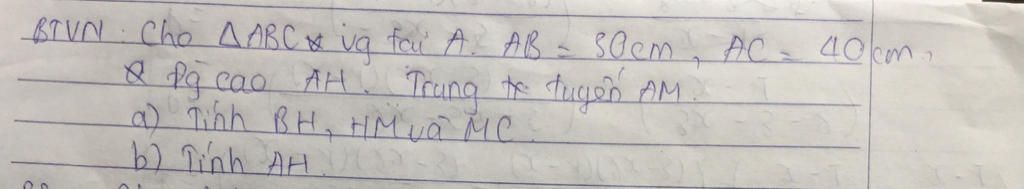 BTVN: Cho ΔABC vg tại A. AB = 30cm, AC = 40cm,
Đg cao AH. Trung tuyến AM.
a) Tính BH, HM và MC.
b) Tính AH.